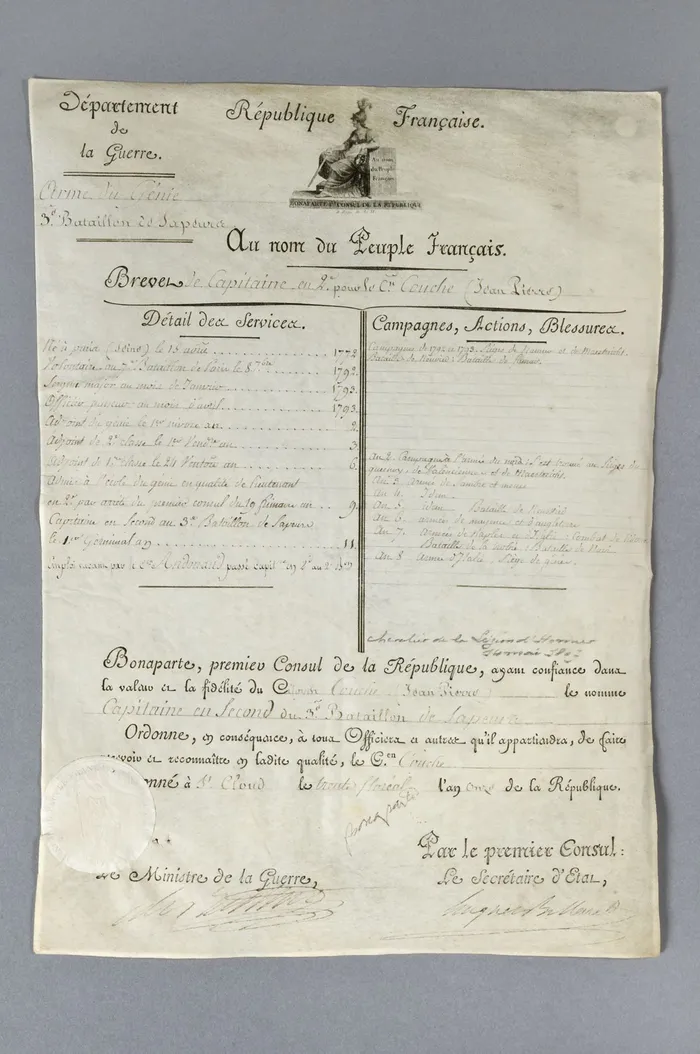 Département
de
la Guerre.
République Française.
Au nom
du Peuple
Français
BONAPARTE 1er CONSUL DE LA REPUBLIQUE
Arme du Génie
3e Bataillon de Sapeurs
Au nom du Peuple Français.
Brevet de Capitaine en 2d pour le Cen Couche (Jean Pierre)
Détail des Services.
Né à paris (Seine) le 15 août 1772.
Volontaire au Bataillon de le 1792.
Sergent major au mois de Janvier 1793.
Officier au mois d'avril 1793.
Adjoint du génie le 1er nivose an 2.
Adjoint de 2e Classe le 1er Vendre an 3.
Adjoint de 1re classe le 24 Ventose an 6.
Admis à l'école du génie en qualité de lieutenant
en 2d par arrêté du premier consul du 19 frimaire an 9.
Capitaine en Second au 3e Bataillon de Sapeurs
le 1er Germinal an 11.
Emploi vacant par le Cen passé Capit en 2d au 2e Bon
Campagnes, Actions, Blessures.
Campagnes de 1792 et 1793. Siège de et de Maestricht.
Bataille de Bataille de
An 2. Campagne à l'armée du nord. S'est trouvé au Sièges du
quesnoy, de Valenciennes et de Maestricht.
An 3. Armée de Sambre et meuse
An 4. Idem
An 5. idem Bataille de Neuwied
An 6. armées de mayence et d'angleterre
An 7. armées de Naples et d'Italie. Combat de
Bataille de la trebia. Bataille de Novi.
An 8. armée d'Italie. Siège de gênes.
chevalier de la Légion d'Honneur
Bonaparte, premier Consul de la République, ayant confiance dans
la valeur et la fidélité du Citoyen Couche Jean Pierre le nomme
Capitaine en Second du 3e Bataillon de Sapeurs
Ordonne, en conséquence, à tous Officiers et autres qu'il appartiendra, de faire
recevoir et reconnaître en ladite qualité, le C.en Couche
Donné à St Cloud le trente floréal l'an onze de la République.
bonaparte
Par le premier Consul:
Le Ministre de la Guerre,
Le Secrétaire d'Etat,
Hugues B. Maret